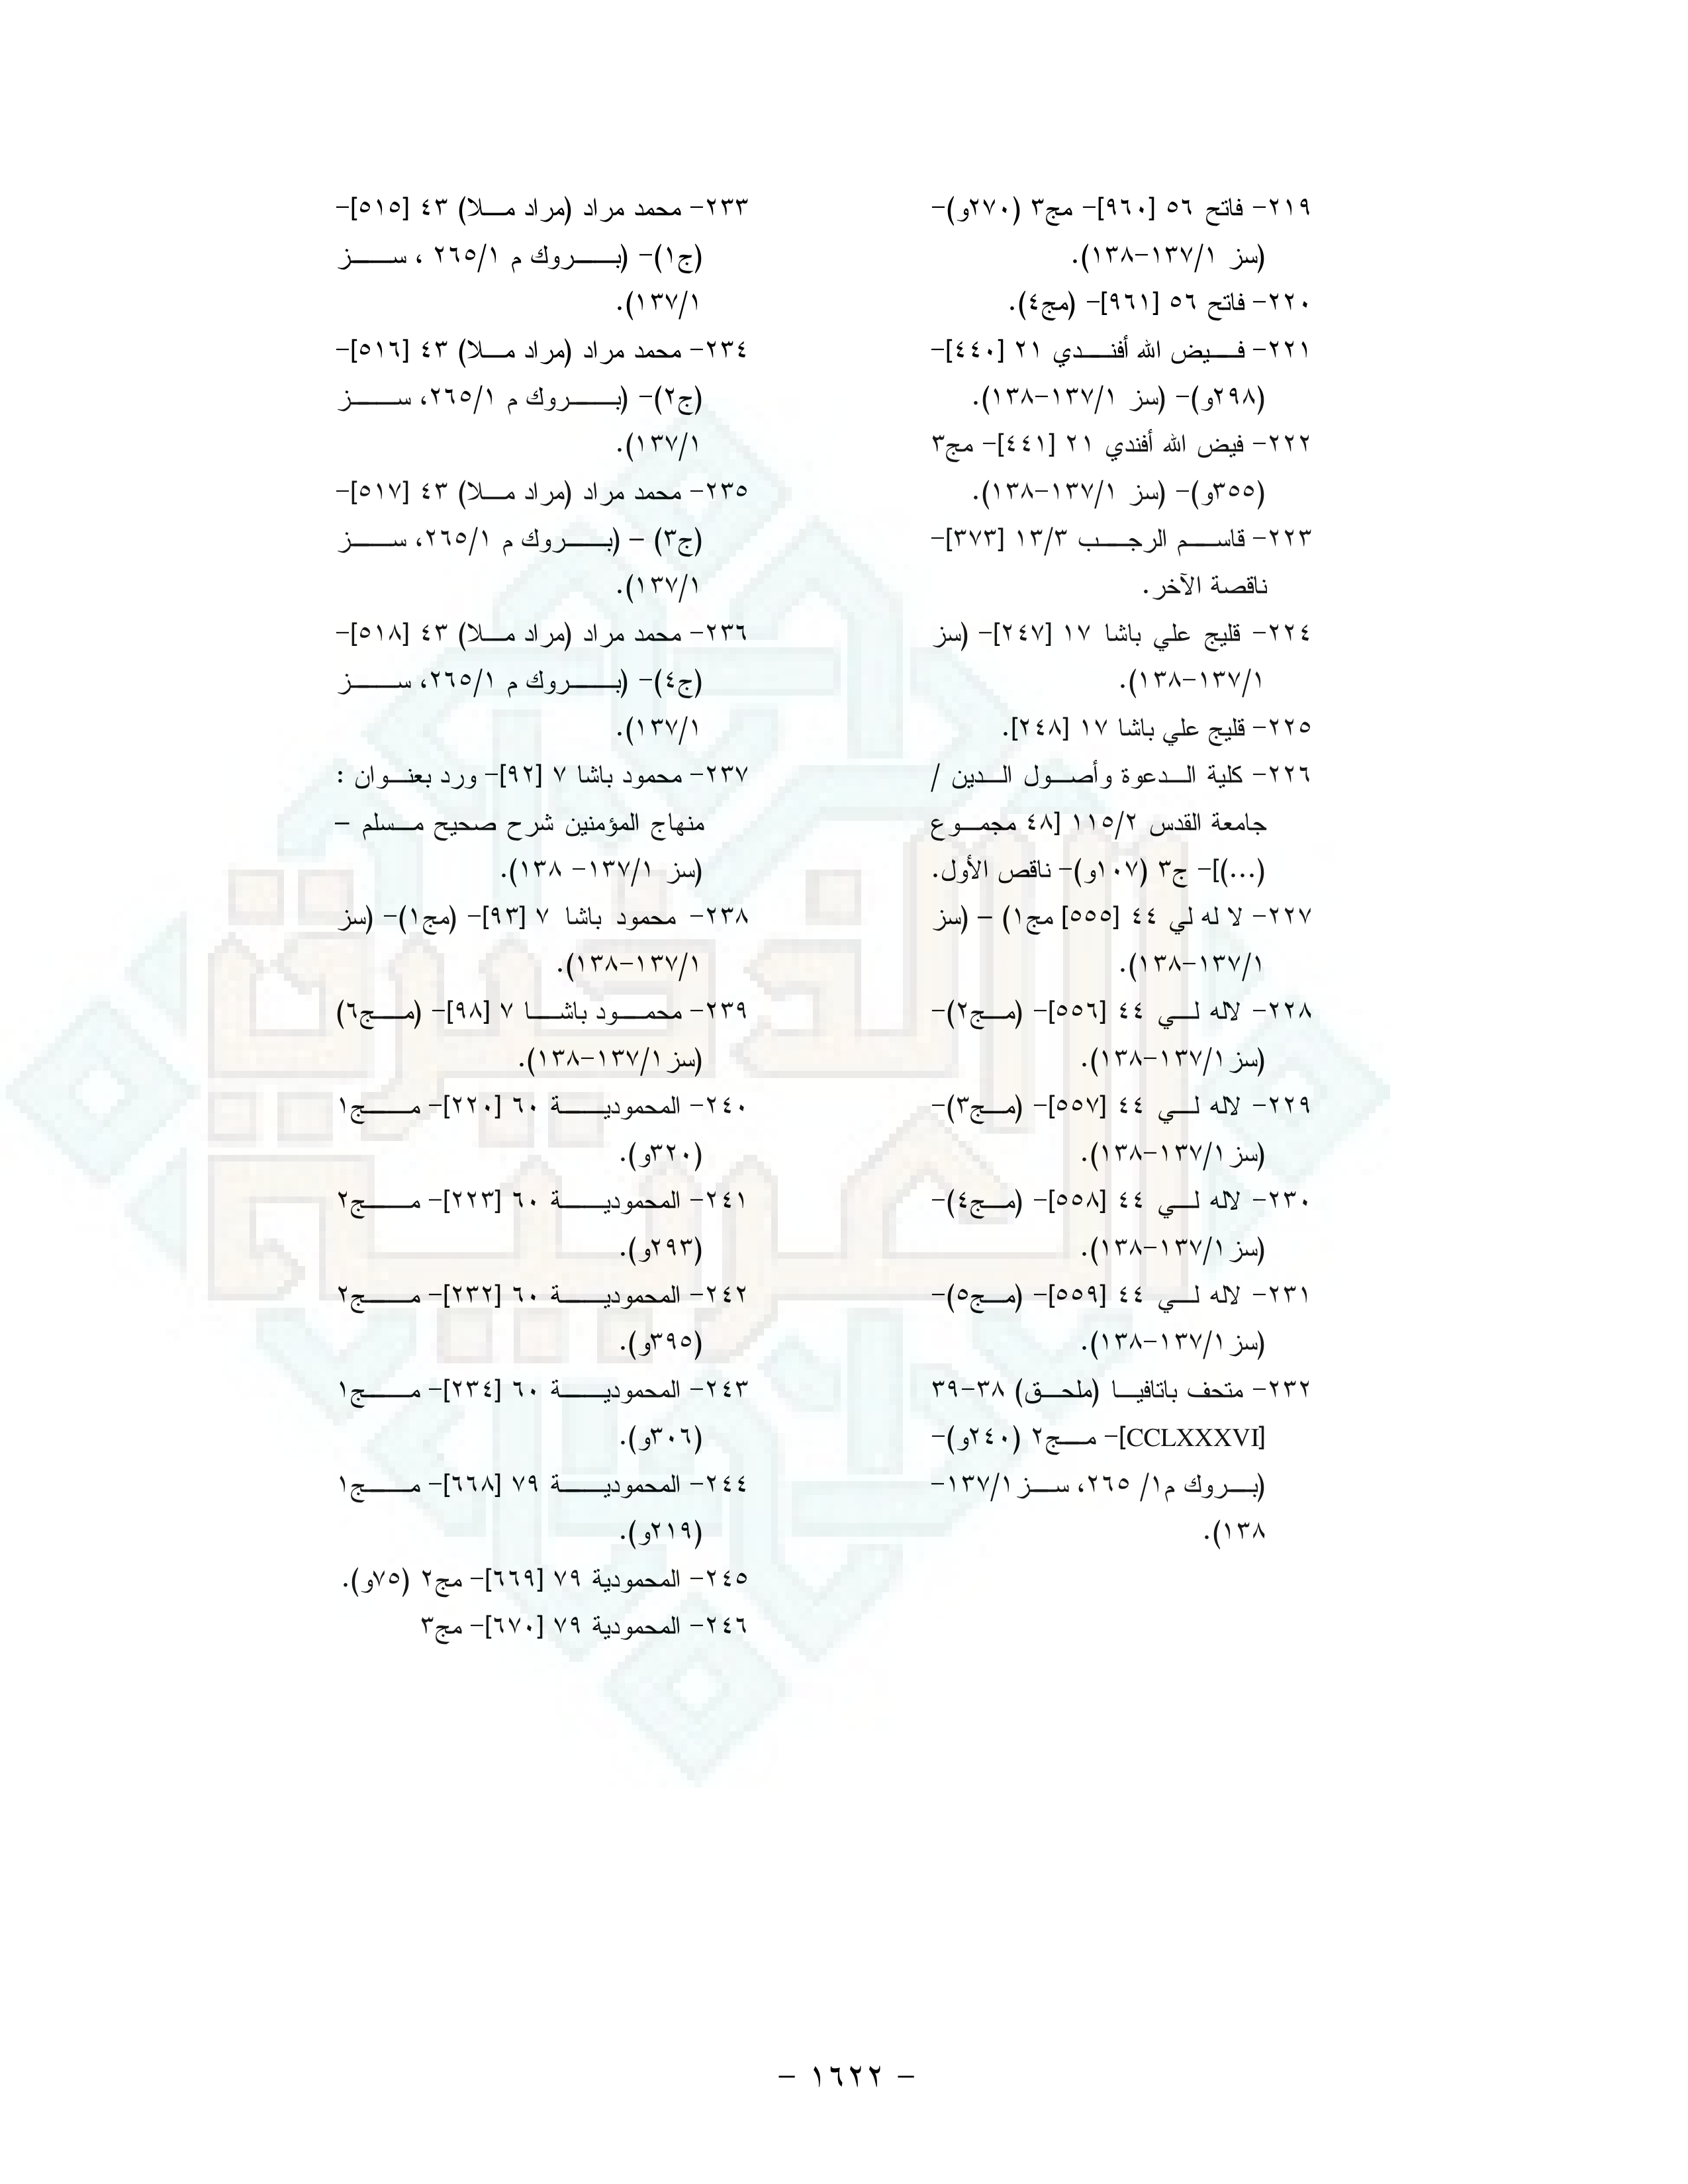 ٢١٩- فاتح ٥٦ [٩٦٠]- مج٣ (٢٧٠و)-
(سز ١/١٣٧-١٣٨).
٢٢٠- فاتح ٥٦ [٩٦١]- (مج٤).
٢٢١- فيض الله أفندي ٢١ [٤٤٠]-
(٢٩٨و)- (سز ١/١٣٧-١٣٨).
٢٢٢- فيض الله أفندي ٢١ [٤٤١]- مج٣
(٣٥٥و)- (سز ١/١٣٧-١٣٨).
٢٢٣- قاسم الرجب ١٣/٣ [٣٧٣]-
ناقصة الآخر.
٢٢٤- قليج علي باشا ١٧ [٢٤٧]- (سز
١/١٣٧-١٣٨).
٢٢٥- قليج علي باشا ١٧ [٢٤٨].
٢٢٦- كلية الدعوة وأصول الدين /
جامعة القدس ١١٥/٢ [٤٨ مجموع
(...)]- ج٣ (١٠٧و)- ناقص الأول.
٢٢٧- لا له لي ٤٤ [٥٥٥] مج١) – (سز
١/١٣٧-١٣٨).
٢٢٨- لاله لي ٤٤ [٥٥٦]- (مج٢)-
(سز ١/١٣٧-١٣٨).
٢٢٩- لاله لي ٤٤ [٥٥٧]- (مج٣)-
(سز ١/١٣٧-١٣٨).
٢٣٠- لاله لي ٤٤ [٥٥٨]- (مج٤)-
(سز ١/١٣٧-١٣٨).
٢٣١- لاله لي ٤٤ [٥٥٩]- (مج٥)-
(سز ١/١٣٧-١٣٨).
٢٣٢- متحف باتافيا (ملحق) ٣٨-٣٩
[CCLXXXVI]- مج٢ (٢٤٠و)-
(بروك م١/ ٢٦٥، سز ١/١٣٧-
١٣٨).
٢٣٣- محمد مراد (مراد ملا) ٤٣ [٥١٥]-
(ج١)- (بروك م ٢٦٥/١ ، سز
١/١٣٧).
٢٣٤- محمد مراد (مراد ملا) ٤٣ [٥١٦]-
(ج٢)- (بروك م ٢٦٥/١، سز
١/١٣٧).
٢٣٥- محمد مراد (مراد ملا) ٤٣ [٥١٧]-
(ج٣) – (بروك م ٢٦٥/١، سز
١/١٣٧).
٢٣٦- محمد مراد (مراد ملا) ٤٣ [٥١٨]-
(ج٤)- (بروك م ٢٦٥/١، سز
١/١٣٧).
٢٣٧- محمود باشا ٧ [٩٢]- ورد بعنوان :
منهاج المؤمنين شرح صحيح مسلم –
(سز ١/١٣٧- ١٣٨).
٢٣٨- محمود باشا ٧ [٩٣]- (مج١)- (سز
١/١٣٧-١٣٨).
٢٣٩- محمود باشا ٧ [٩٨]- (مج٦)
(سز ١/١٣٧-١٣٨).
٢٤٠- المحمودية ٦٠ [٢٢٠]- مج١
(٣٢٠و).
٢٤١- المحمودية ٦٠ [٢٢٣]- مج٢
(٢٩٣و).
٢٤٢- المحمودية ٦٠ [٢٣٢]- مج٢
(٣٩٥و).
٢٤٣- المحمودية ٦٠ [٢٣٤]- مج١
(٣٠٦و).
٢٤٤- المحمودية ٧٩ [٦٦٨]- مج١
(٢١٩و).
٢٤٥- المحمودية ٧٩ [٦٦٩]- مج٢ (٧٥و).
٢٤٦- المحمودية ٧٩ [٦٧٠]- مج٣
الذخيرة
العربية
- ١٦٢٢ -